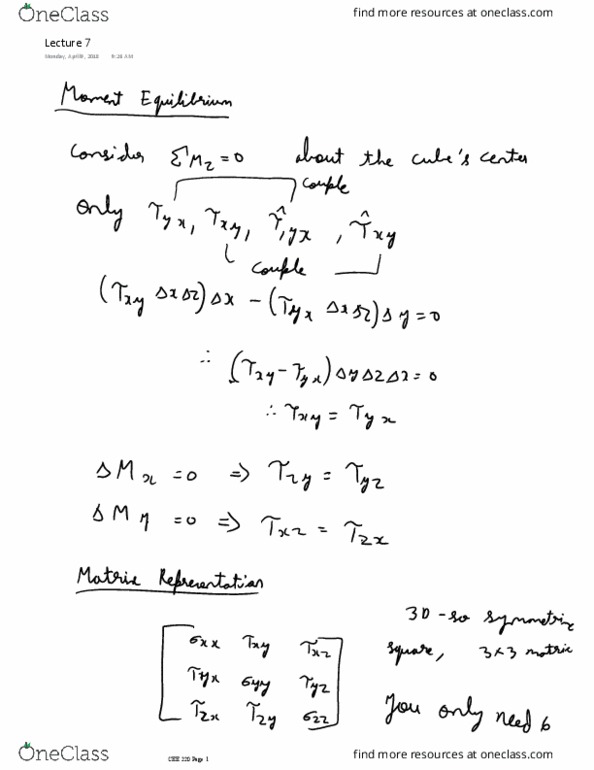 OneClass
find more resources at oneclass.com
Lecture 7
Monday, April 9, 2018 9:28 AM
Moment Equilibrium
Consider ΣM_z = 0 about the cube's center
couple
only τ_yx, τ_xy, τ̂_yx, τ̂_xy
couple
(τ_xy ΔxΔz)Δx - (τ_yx ΔxΔz)Δy = 0
∴ (τ_xy - τ_yx)ΔyΔzΔx = 0
∴ τ_xy = τ_yx
ΔM_x = 0 ⇒ τ_zy = τ_yz
ΔM_y = 0 ⇒ τ_xz = τ_zx
Matrix Representation
3D - so symmetric
σxx τxy τxz
square, 3x3 matrix
τyx σyy τyz
τzx τzy σzz
You only need 6
OneClass
CEE 220 Page 1
find more resources at oneclass.com